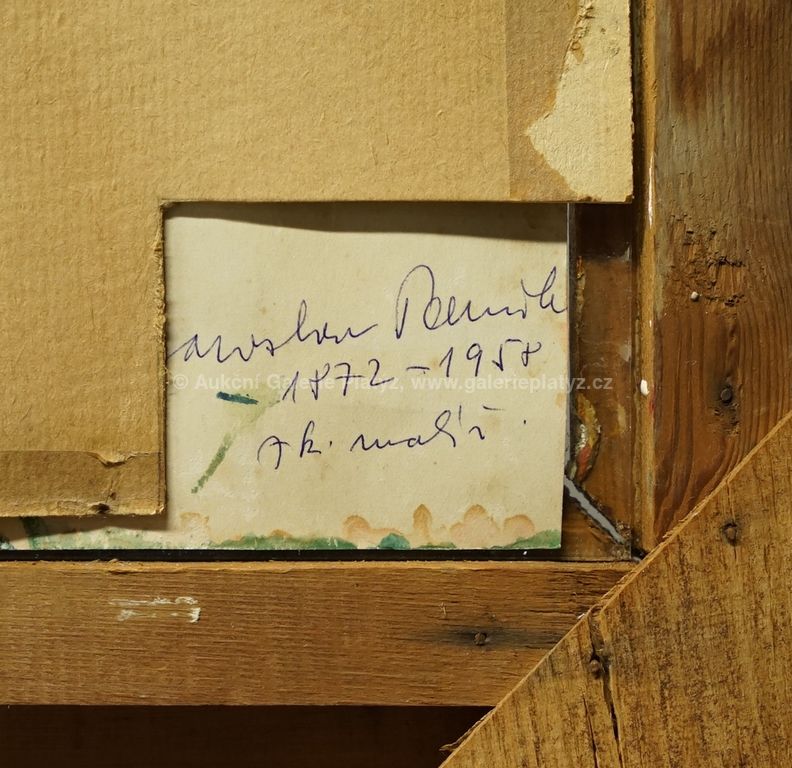 aroslav Benda
1872 – 1958
© Aukční Galerie Platýz, www.galerieplatyz.cz
ak. malíř.